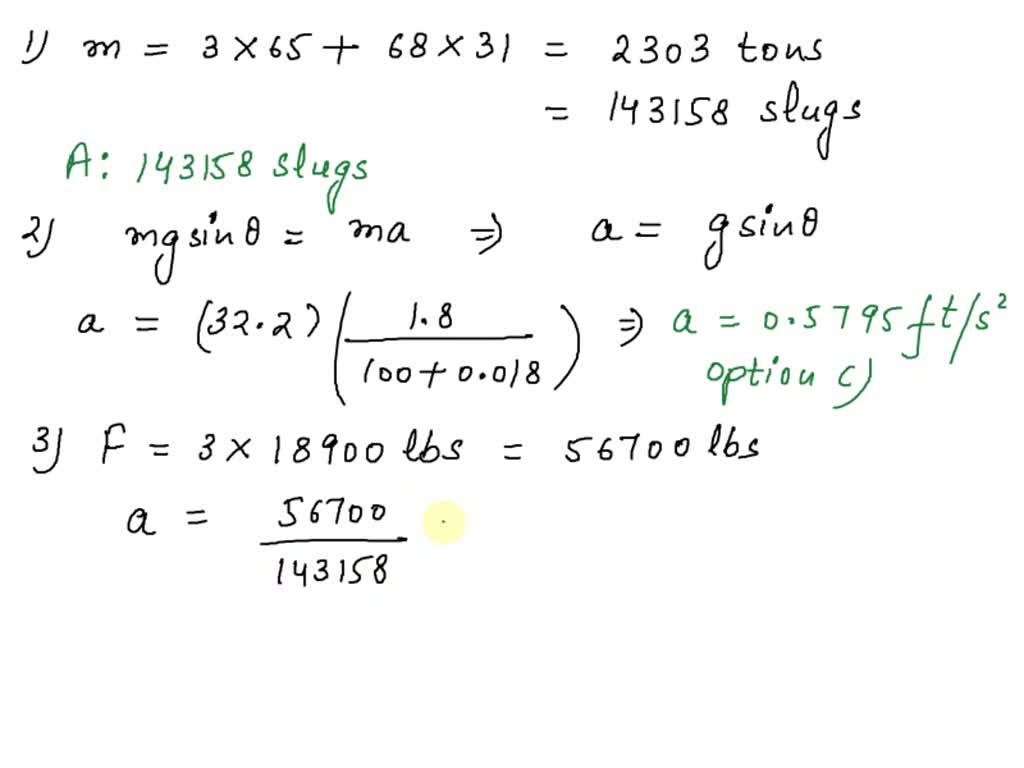 1) m = 3 × 65 + 68 × 31 = 2303 tons
= 143158 slugs
A: 143158 slugs
2) mg sinθ = ma ⇒ a = g sinθ
a = (32.2) (1.8 / 100 + 0.018) ⇒ a = 0.5795 ft/s²
option c)
3) F = 3 × 18900 lbs = 56700 lbs
a = 56700 / 143158